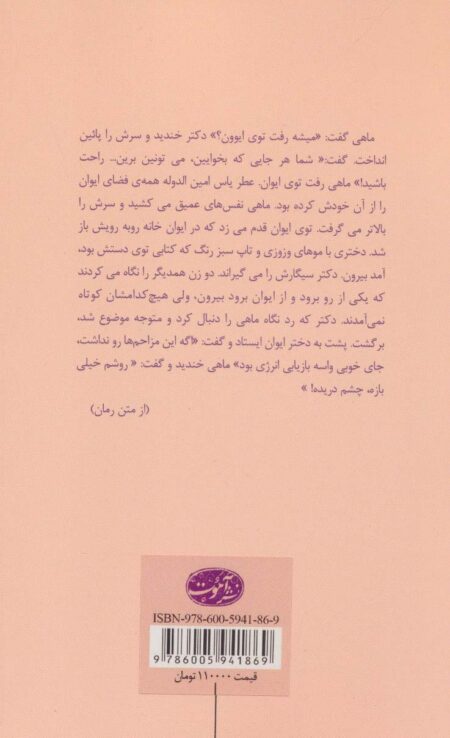 ماهی گفت: «میشه رفت توی ایوون؟» دکتر خندید و سرش را پائین
انداخت. گفت:« شما هر جایی که بخوایین، می تونین برین... راحت
باشید!» ماهی رفت توی ایوان. عطر یاس امین الدوله همه‌ی فضای ایوان
را از آن خودش کرده بود. ماهی نفس‌های عمیق می کشید و سرش را
بالاتر می گرفت. توی ایوان قدم می زد که در ایوان خانه روبه رویش باز
شد. دختری با موهای وزوزی و تاپ سبز رنگ که کتابی توی دستش بود،
آمد بیرون. دکتر سیگارش را می گیراند. دو زن همدیگر را نگاه می کردند
که یکی از رو برود و از ایوان برود بیرون، ولی هیچ‌کدامشان کوتاه
نمی‌آمدند. دکتر که رد نگاه ماهی را دنبال کرد و متوجه موضوع شد،
برگشت. پشت به دختر ایوان ایستاد و گفت: «اگه این مزاحم‌ها رو نداشت،
جای خوبی واسه بازیابی انرژی بود» ماهی خندید و گفت: « روشم خیلی
بازه، چشم دریده! »
(از متن رمان)
نشر آموت
ISBN-978-600-5941-86-9
9 786005 941869
قیمت ۱۱۰۰۰۰ تومان